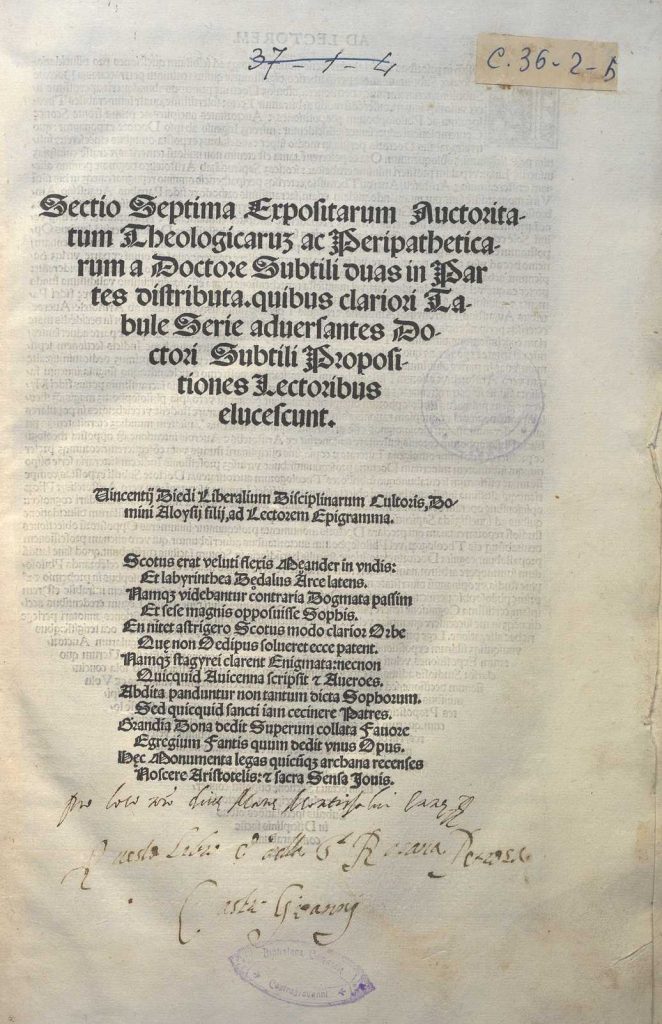 AD LECTOREM
37-1-4
C. 36-2-5
Sectio Septima Expositarum Auctorita-
tum Theologicaruȝ ac Peripathetica-
rum a Doctore Subtili duas in Par
tes distributa. quibus clariori Ta-
bule Serie aduersantes Do-
ctori Subtili Proposi-
tiones Lectoribus
elucescunt.
Uincentij Diedi Liberalium Disciplinarum Cultoris, Do-
mini Aloysij filij, ad Lectorem Epigramma.
Scotus erat veluti flexis Meander in vndis:
Et labyrinthea Dedalus Arce latens.
Namqȝ videbantur contraria Dogmata passim
Et sese magnis opposuisse Sophis.
En nitet astrigero Scotus modo clarior Orbe
Quę non Oedipus solueret ecce patent.
Namqȝ stagyrei clarent Enigmata: necnon
Quicquid Auicenna scripsit ⁊ Aueroes.
Abdita panduntur non tantum dicta Sophorum.
Sed quicquid sancti iam cecinere Patres.
Grandia Dona dedit Superum collata Fauore
Egregium Fantis quum dedit vnus Opus.
Hęc Monumenta legas quicūqȝ archana recenses
Noscere Aristotelis: ⁊ sacra Sensa Jouis.
pro loco
Questo Libro è della
Castr. Giovannij
Biblioteca Comunale
Castrogiovanni